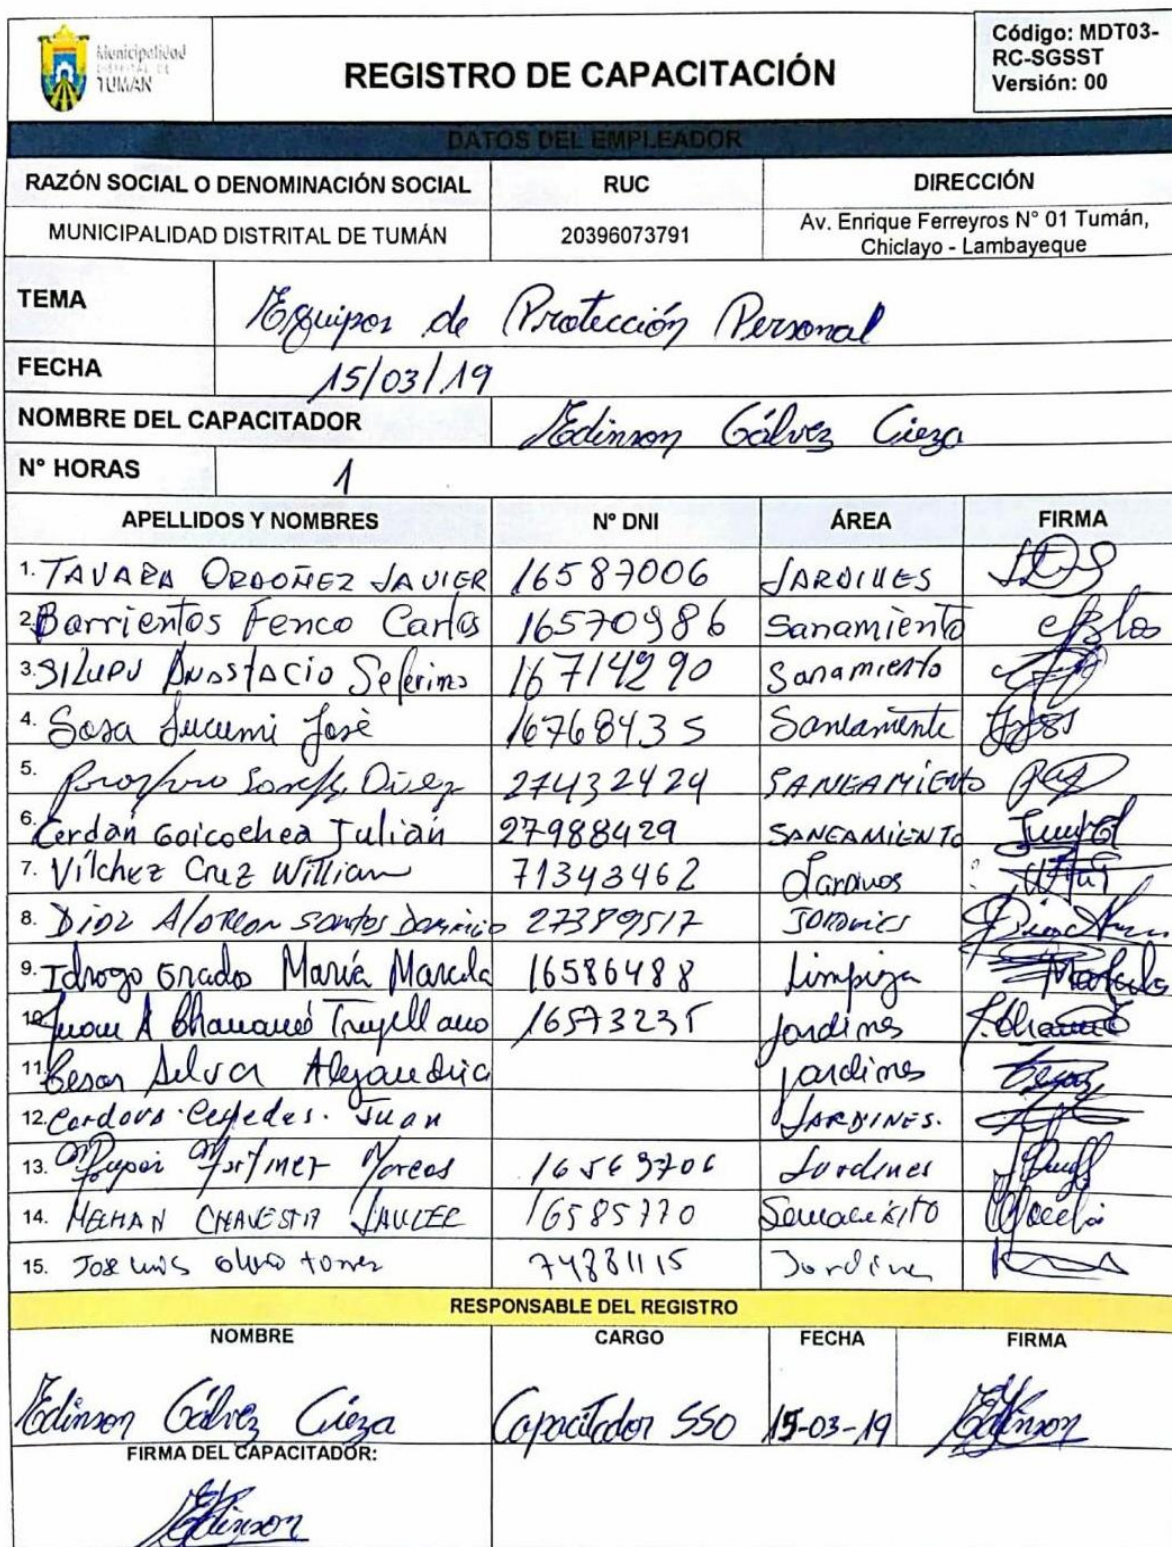 Municipalidad
DISTRITAL DE
TUMAN
REGISTRO DE CAPACITACIÓN
Código: MDT03-
RC-SGSST
Versión: 00
DATOS DEL EMPLEADOR
RAZÓN SOCIAL O DENOMINACIÓN SOCIAL RUC DIRECCIÓN
MUNICIPALIDAD DISTRITAL DE TUMÁN 20396073791 Av. Enrique Ferreyros N° 01 Tumán,
Chiclayo - Lambayeque
TEMA Equipos de Protección Personal
FECHA 15/03/19
NOMBRE DEL CAPACITADOR Edinson Gálvez Cieza
N° HORAS 1
APELLIDOS Y NOMBRES N° DNI ÁREA FIRMA
1. TAVARA ORDOÑEZ JAVIER 16587006 JARDINES
2. Barrientos Fenco Carlos 16570986 Sanamiento
3. SILUPU ANASTACIO Seferino 16714290 Sanamiento
4. Sosa Lucumi José 16768435
5. 27432424 SANEAMIENTO
6. Cerdán Goicochea Julián 27988429 SANEAMIENTO
7. Vílchez Cruz William 71343462
8. santos 27389517
9. Idrogo Grados María Marcela 16586488 Limpieza
10. Juan A Chanamé 16573235 jardines
11. Cesar Silva jardines
12. Cordova. Juan JARDINES.
13. Jardines
14. 16585770
15. 74881115 Jardines
RESPONSABLE DEL REGISTRO
NOMBRE CARGO FECHA FIRMA
Edinson Gálvez Cieza Capacitador SSO 15-03-19 Edinson
FIRMA DEL CAPACITADOR:
Edinson